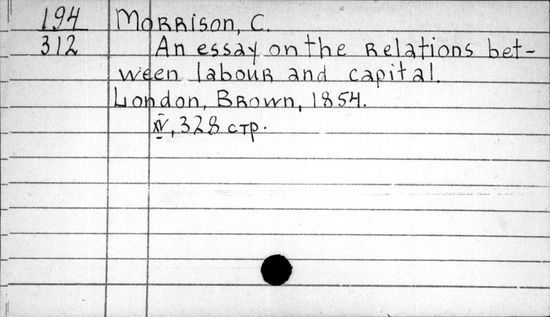 194 Morrison, C.
312 An essay on the relations bet-
ween labour and capital.
London, Brown, 1854.
XV, 328 стр.